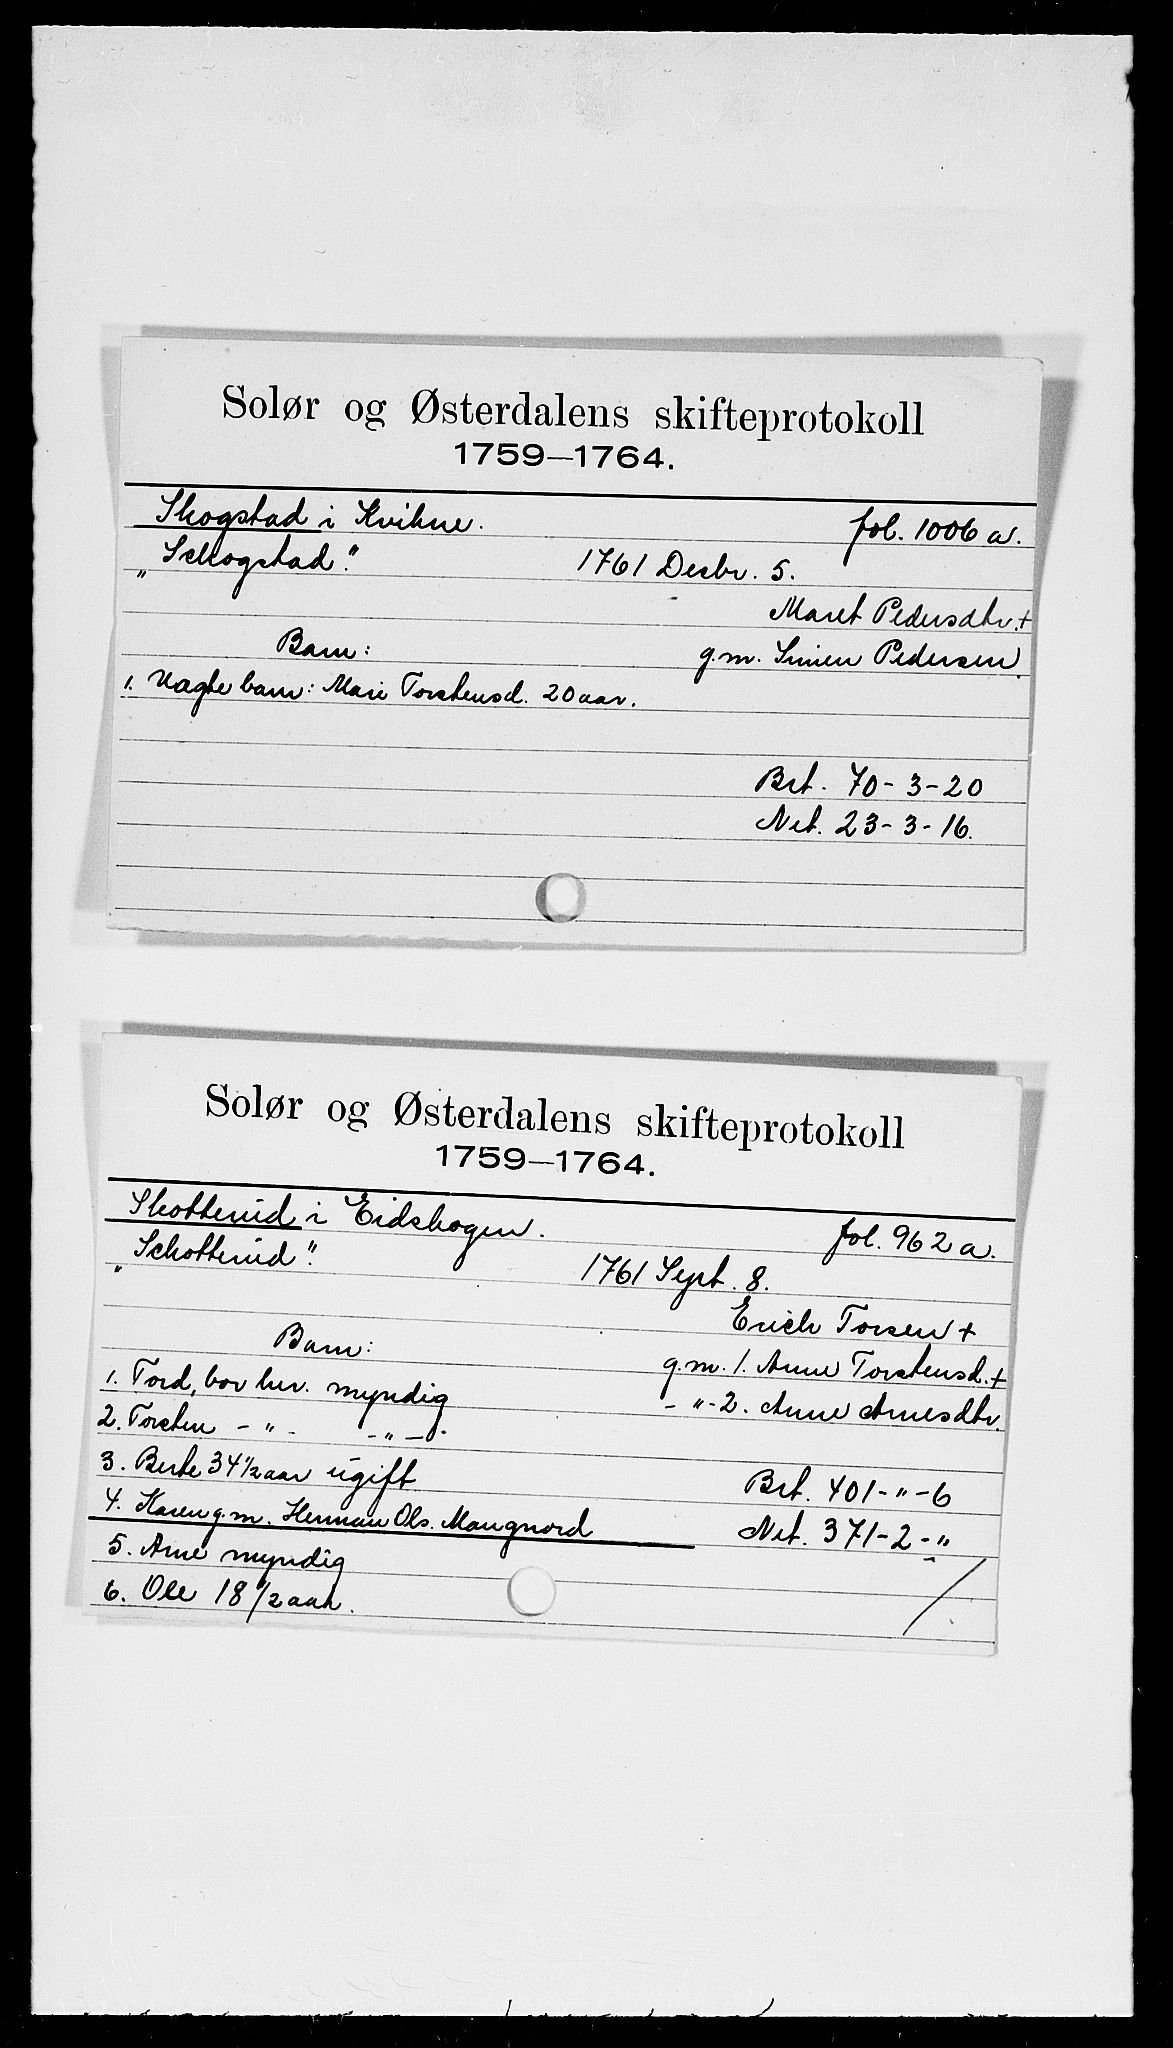 Solør og Østerdalens skifteprotokoll
1759—1764.
Skogstad i Kvikne. fol. 1006 a.
„Schogstad." 1761 Desbr. 5.
Maret Pedersdtr. +
Barn: g.m. Simen Pedersen.
1. Uægte barn: Mari Torstensd. 20 aar.
Brt. 70-3-20
Net. 23-3-16.
Solør og Østerdalens skifteprotokoll
1759—1764.
Skotterud i Eidskogen. fol. 962 a.
„Schotterud". 1761 Sept. 8.
Erich Torsen +
Barn: g.m. 1. Anne Torstensd. +
1. Tord, bor her. myndig - „ - 2. Anne Arnesdtr.
2. Torsten - „ - - „ - .
3. Berte 34 1/2 aar ugift Brt. 401-„-6
4. Karen g.m. Herman Ols. Mangnord Net. 371-2-„
5. Arne myndig
6. Ole 18 1/2 aar.